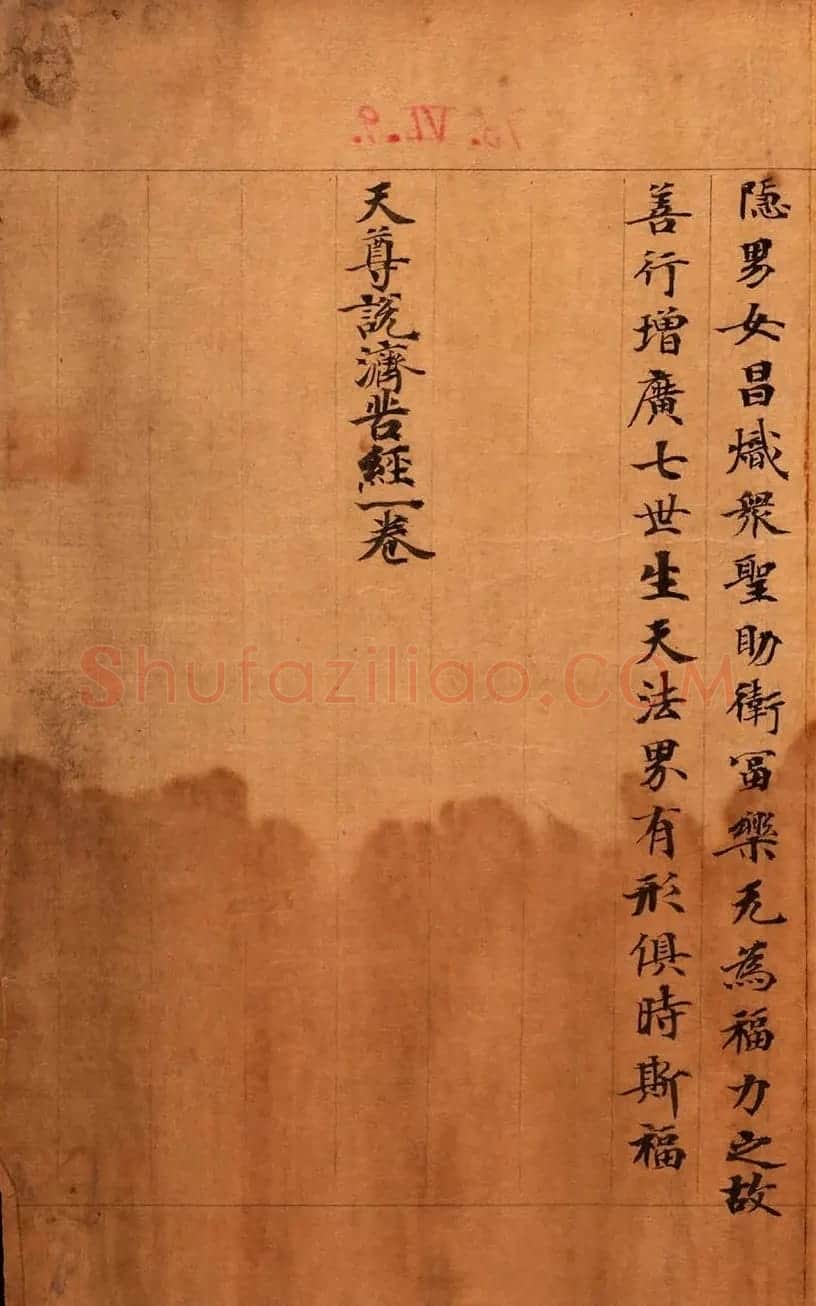 隱男女昌熾衆聖助衛冨樂无為福力之故
善行增廣七世生天法界有形俱時斯福
天尊說濟苦經一卷
Shufaziliao.COM